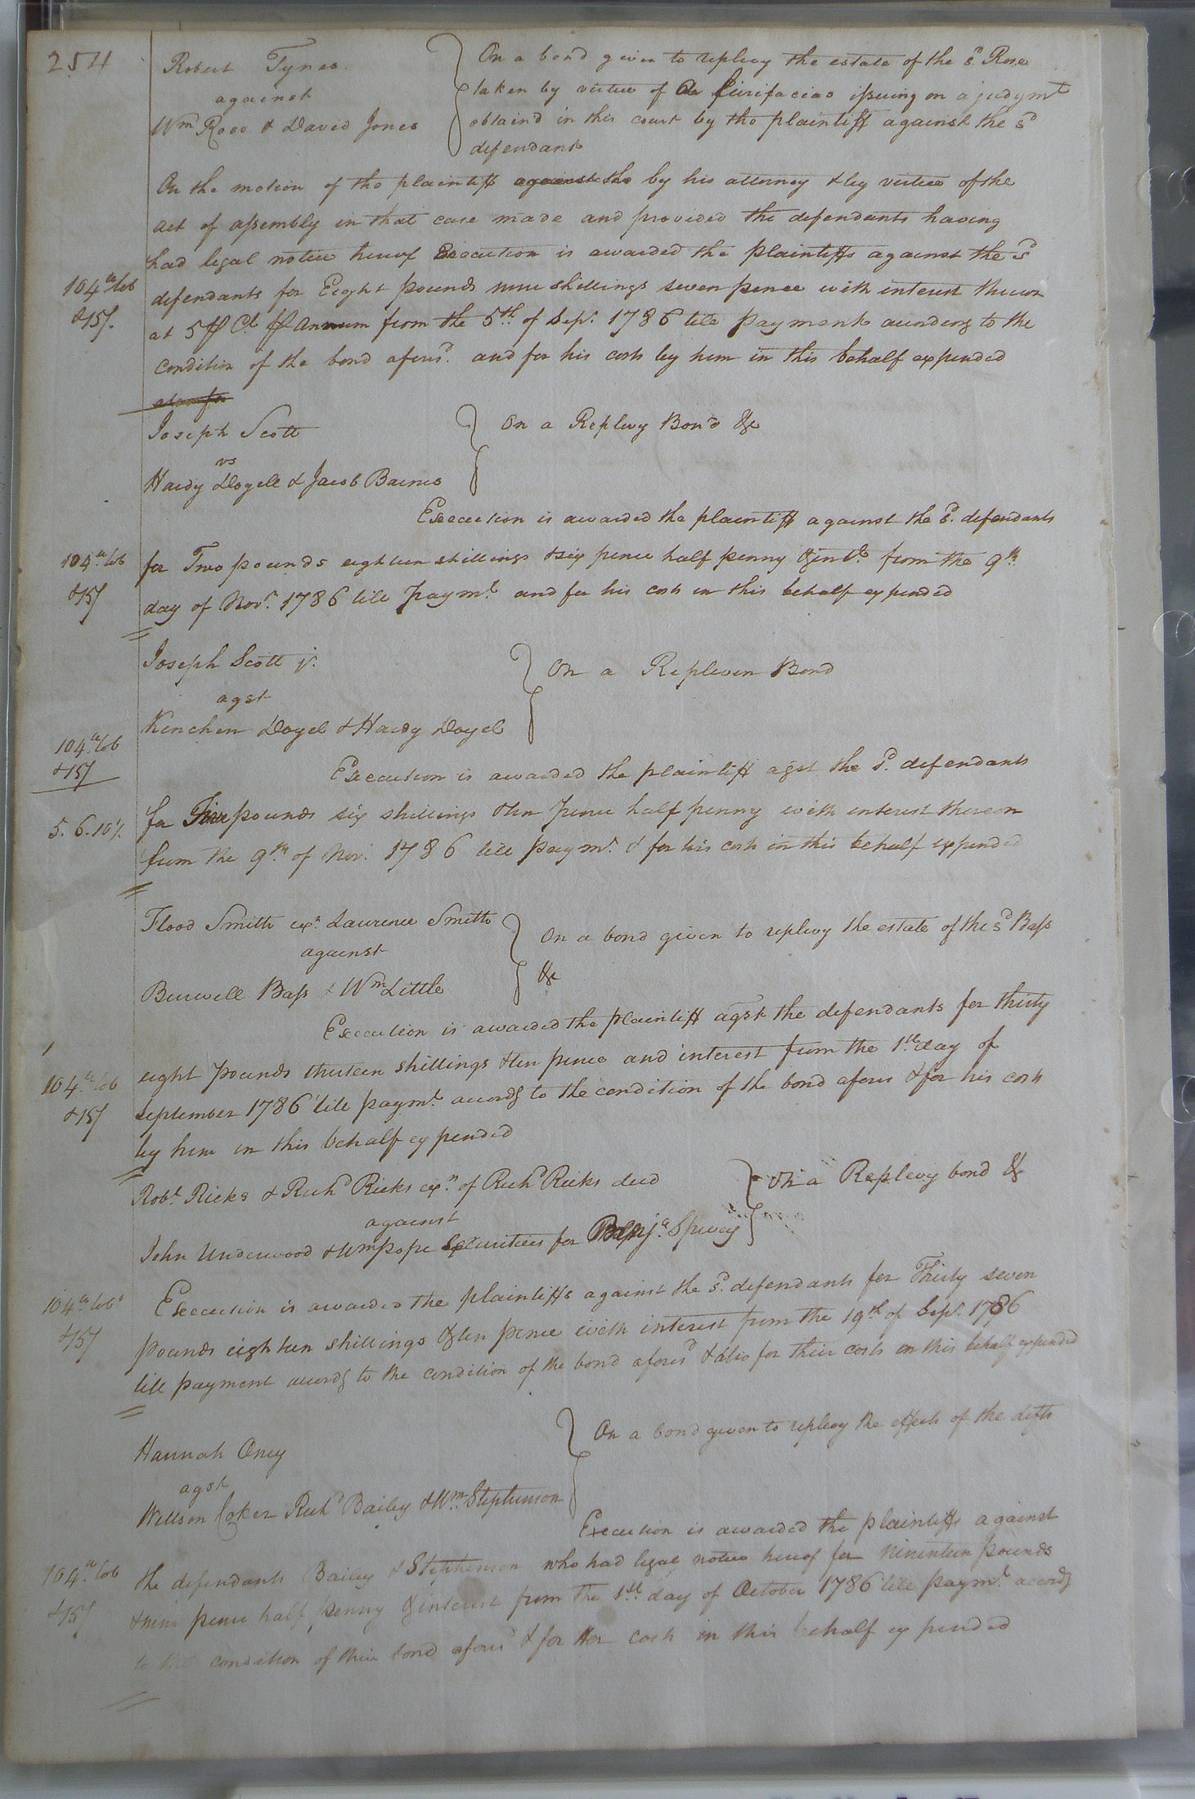 254
Robert Tynes
against
Wm Rose & David Jones
On a bond given to replevy the estate of the sd Rose
taken by virtue of a fierifacias issuing on a judgmt
obtaind in this court by the plaintiff against the sd
defendants
On the motion of the plaintiff against the by his attorney & by virtue of the
act of assembly in that case made and provided the defendants having
had legal notice hereof Execution is awarded the plaintiffs against the sd
104 lb tob
&15/.
defendants for Eight pounds nine shillings seven pence with interest thereon
at 5 p Ct p Annum from the 5th of Sepr. 1786 till payment accordg to the
condition of the bond aforesd. and for his costs by him in this behalf expended
Joseph Scott
vs
Hardy Doyell & Jacob Barnes
On a Replevy Bond &c
Execution is awarded the plaintiff against the sd. defendants
104 lb tob
&15/
for Two pounds eighteen shillings & six pence half penny & intt. from the 9th
day of Novr. 1786 till paymt. and for his costs in this behalf expended
Joseph Scott jr.
agst
Kinchen Doyel & Hardy Doyel
On a Replevin Bond
104 lb tob
&15/
Execution is awarded the plaintiff agst the sd. defendants
5.6.10½
for Five pounds six shillings & ten pence half penny with interest thereon
from the 9th of Novr. 1786 till paymt. & for his costs in this behalf expended
Flood Smith exr Laurence Smith
against
Burwell Bass & Wm Little
On a bond given to replevy the estate of the sd Bass
&c
Execution is awarded the plaintiff agst the defendants for thirty
104 lb tob
&15/
eight pounds thirteen shillings & ten pence and interest from the 1st day of
September 1786 till paymt. accordg to the condition of the bond afores & for his costs
by him in this behalf expended
Robt Ricks & Richd Ricks exrs. of Richd Ricks decd
against
John Underwood & Wm Pope Securities for Benja Spivey
On a Replevy bond &c
104 lb tobo
&15/
Execution is awarded the plaintiffs against the sd. defendants for Thirty seven
pounds eighteen shillings & ten pence with interest from the 19th of Sepr. 1786
till payment accordg to the condition of the bond aforesd & also for their costs in this behalf expended
Hannah Oney
agst
Willson Coker Richd Bailey & Wm Stephenson
On a bond given to replevy the effects of the defts
Execution is awarded the plaintiffs against
104 lb tob
&15/
the defendants Bailey & Stephenson who had legal notice hereof for Nineteen pounds
& nine pence half penny & interest from the 1st day of October 1786 till paymt accordg
to the condition of their bond aforesd & for her costs in this behalf expended